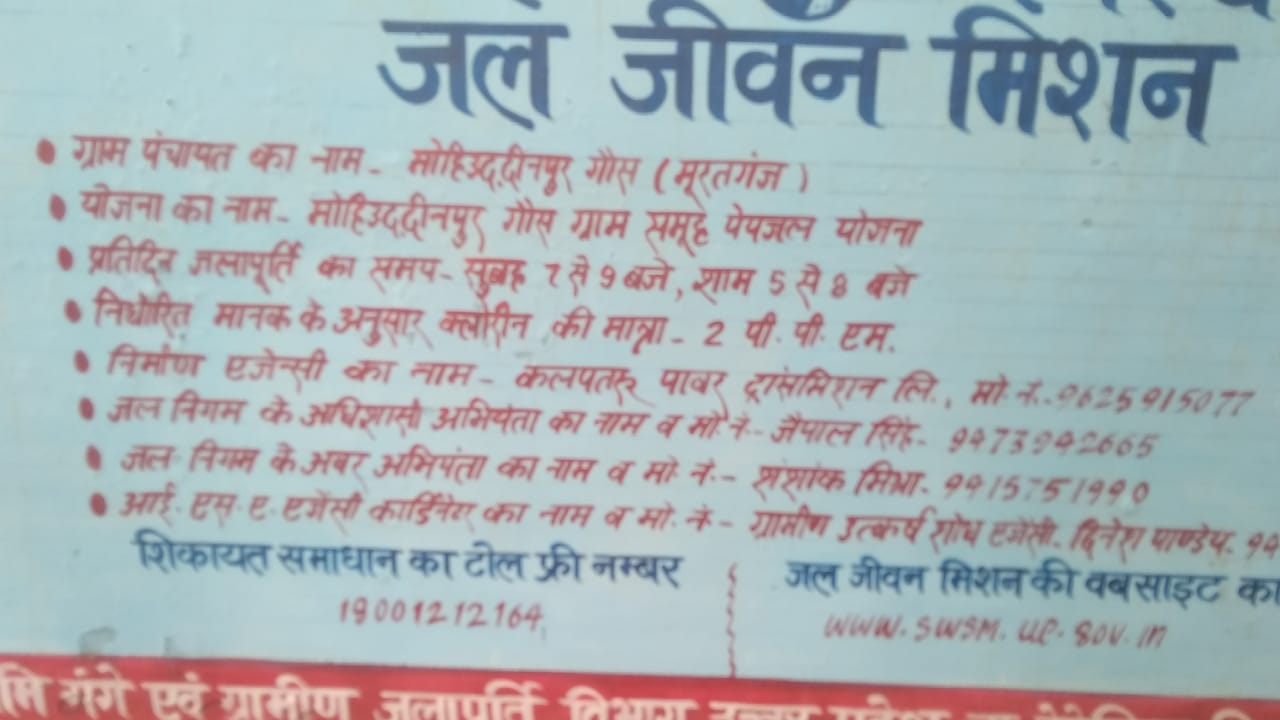 जल जीवन मिशन
• ग्राम पंचायत का नाम - मोहिउद्दीनपुर गौस (मूरतगंज)
• योजना का नाम - मोहिउददीनपुर गौस ग्राम समूह पेयजल योजना
• प्रतिदिन जलापूर्ति का समय - सुबह 7 से 9 बजे, शाम 5 से 8 बजे
• निर्धारित मानक के अनुसार क्लोरीन की मात्रा - 2 पी. पी. एम.
• निर्माण एजेन्सी का नाम - कलपतरू पावर ट्रांसमिशन लि., मो. नं.- 9625915077
• जल निगम के अधिशासी अभियंता का नाम व मो. नं.- जैपाल सिंह - 9473942665
• जल निगम के अवर अभियंता का नाम व मो. नं.- शशांक मिश्रा - 9915751990
• आई. एस. ए. एजेंसी कार्डिनेटर का नाम व मो. नं.- ग्रामीण उत्कर्ष शोध एजेंसी. दिनेश पाण्डेय. 94
शिकायत समाधान का टोल फ्री नम्बर
18001212164
जल जीवन मिशन की वेबसाइट का
www.swsm.up.gov.in
मि गंगे एवं ग्रामीण जलापूर्ति विभाग उत्तर प्रदेश